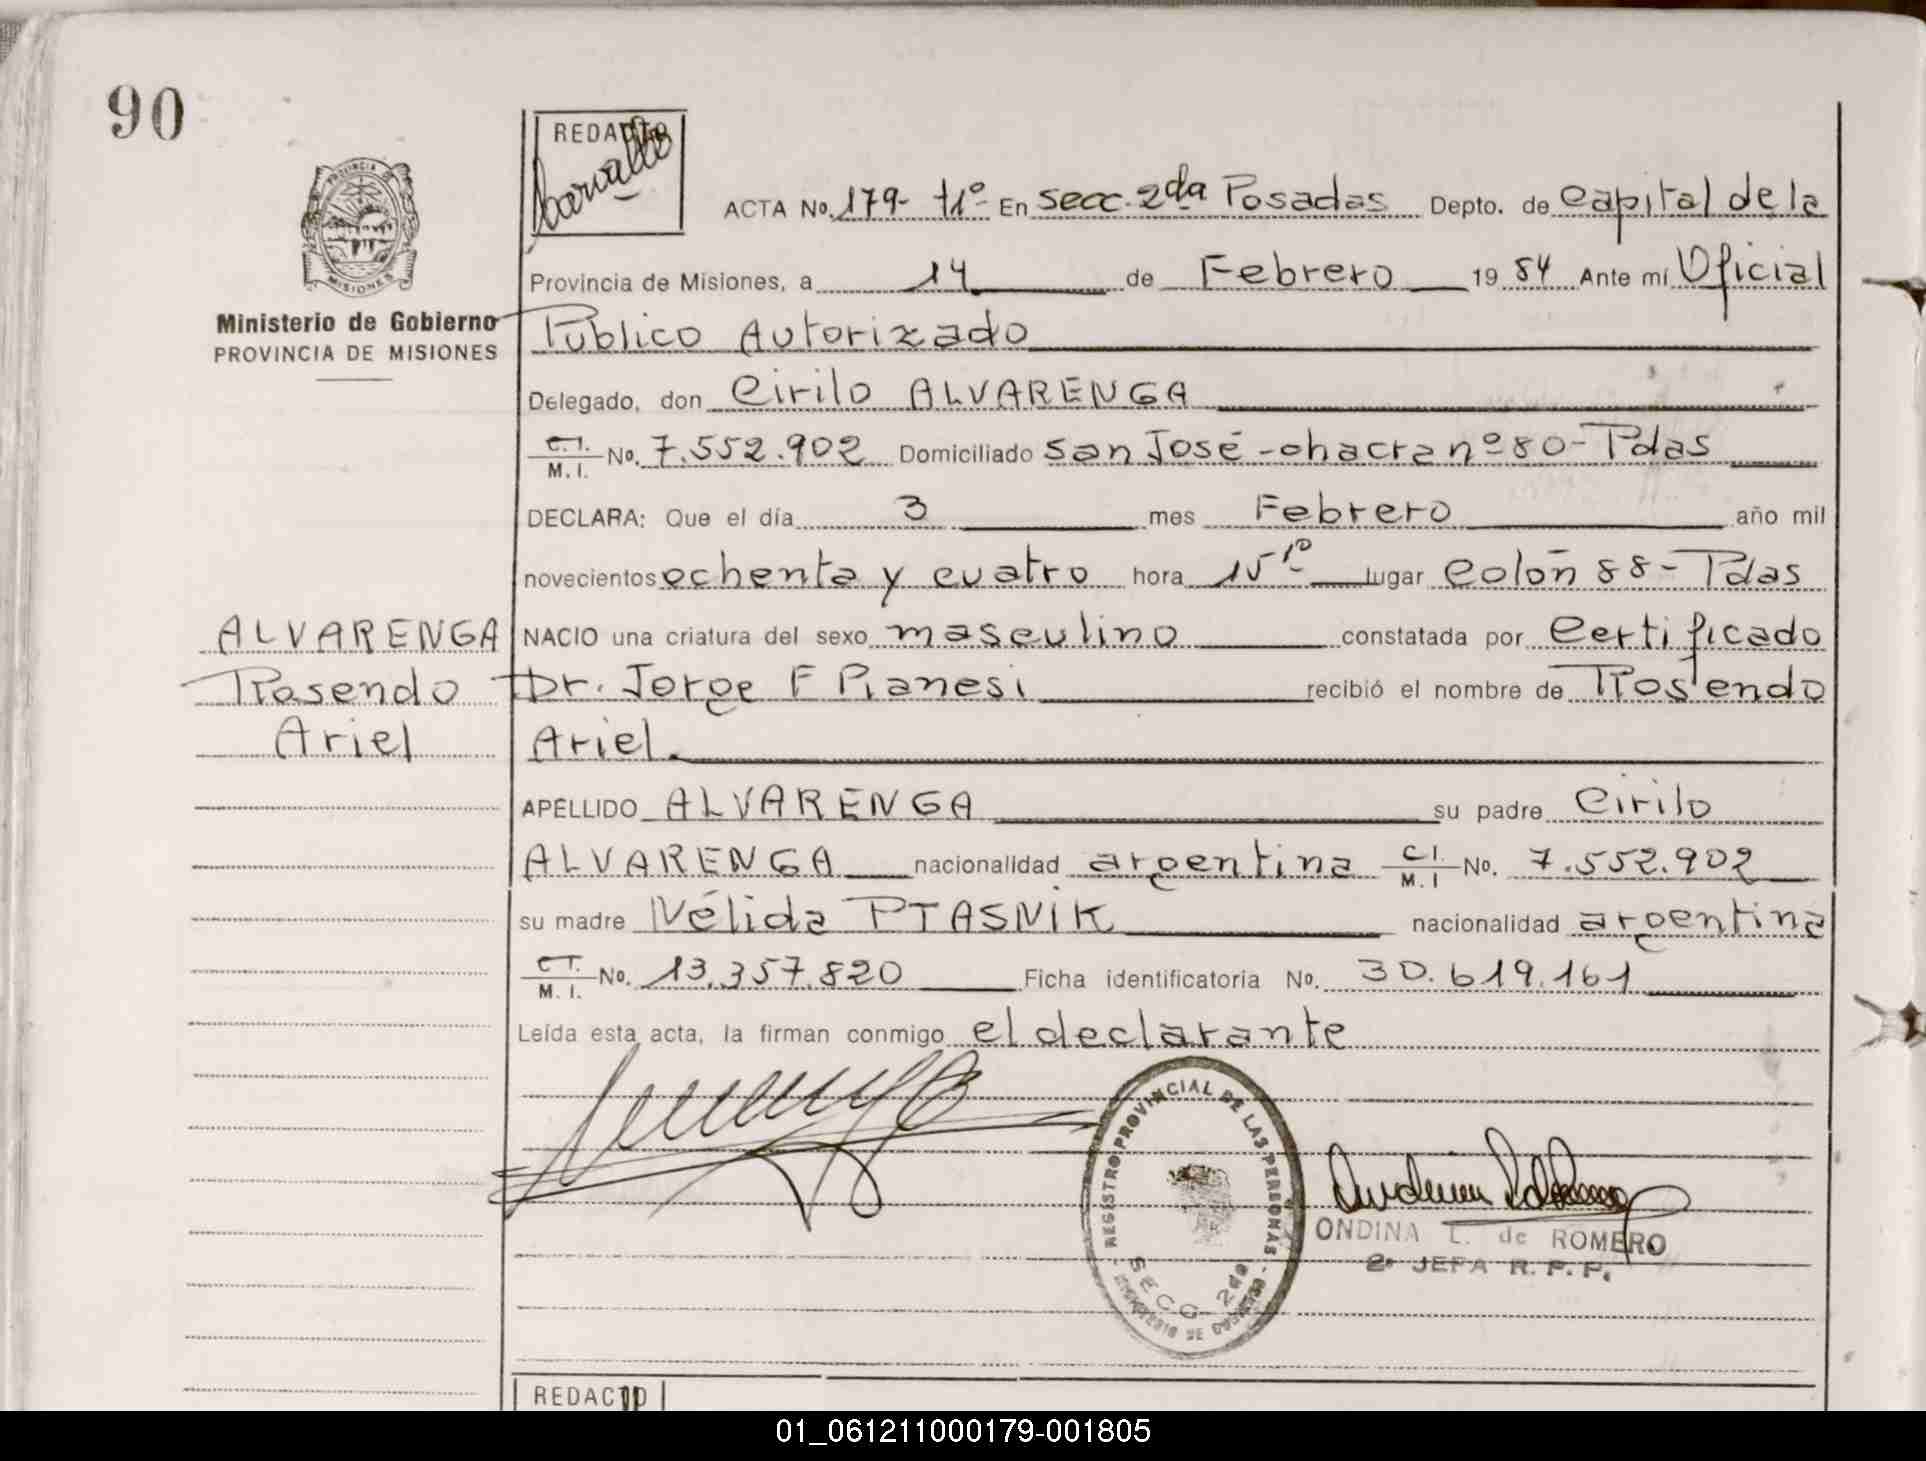 90
REDACTO
Carvallo
PROVINCIA DE
MISIONES
ACTA No. 179- t1º- En secc. 2da Posadas Depto. de Capital de la
Provincia de Misiones, a 14 de Febrero 1984 Ante mí Oficial
Ministerio de Gobierno
PROVINCIA DE MISIONES
Público Autorizado
Delegado, don Cirilo ALVARENGA
C.I. M.I. No. 7.552.902 Domiciliado San José - chacra nº 80 - Pdas
DECLARA: Que el día 3 mes Febrero año mil
novecientos ochenta y cuatro hora 15 10 lugar Colón 88 - Pdas
ALVARENGA
NACIO una criatura del sexo masculino constatada por Certificado
Rosendo
Dr. Jorge F Pianesi recibió el nombre de Rosendo
Ariel
Ariel.
APELLIDO ALVARENGA su padre Cirilo
ALVARENGA nacionalidad argentina C.I. M.I No. 7.552.902
su madre Nélida PTASNIK nacionalidad argentina
C.I. M.I. No. 13.357.820 Ficha identificatoria No. 30.619.161
Leída esta acta, la firman conmigo el declarante
REGISTRO PROVINCIAL DE LAS PERSONAS
SECC 2da
MINISTERIO DE GOBIERNO
ONDINA L. de ROMERO
2º JEFA R. P. P.
REDACTO
01_061211000179-001805